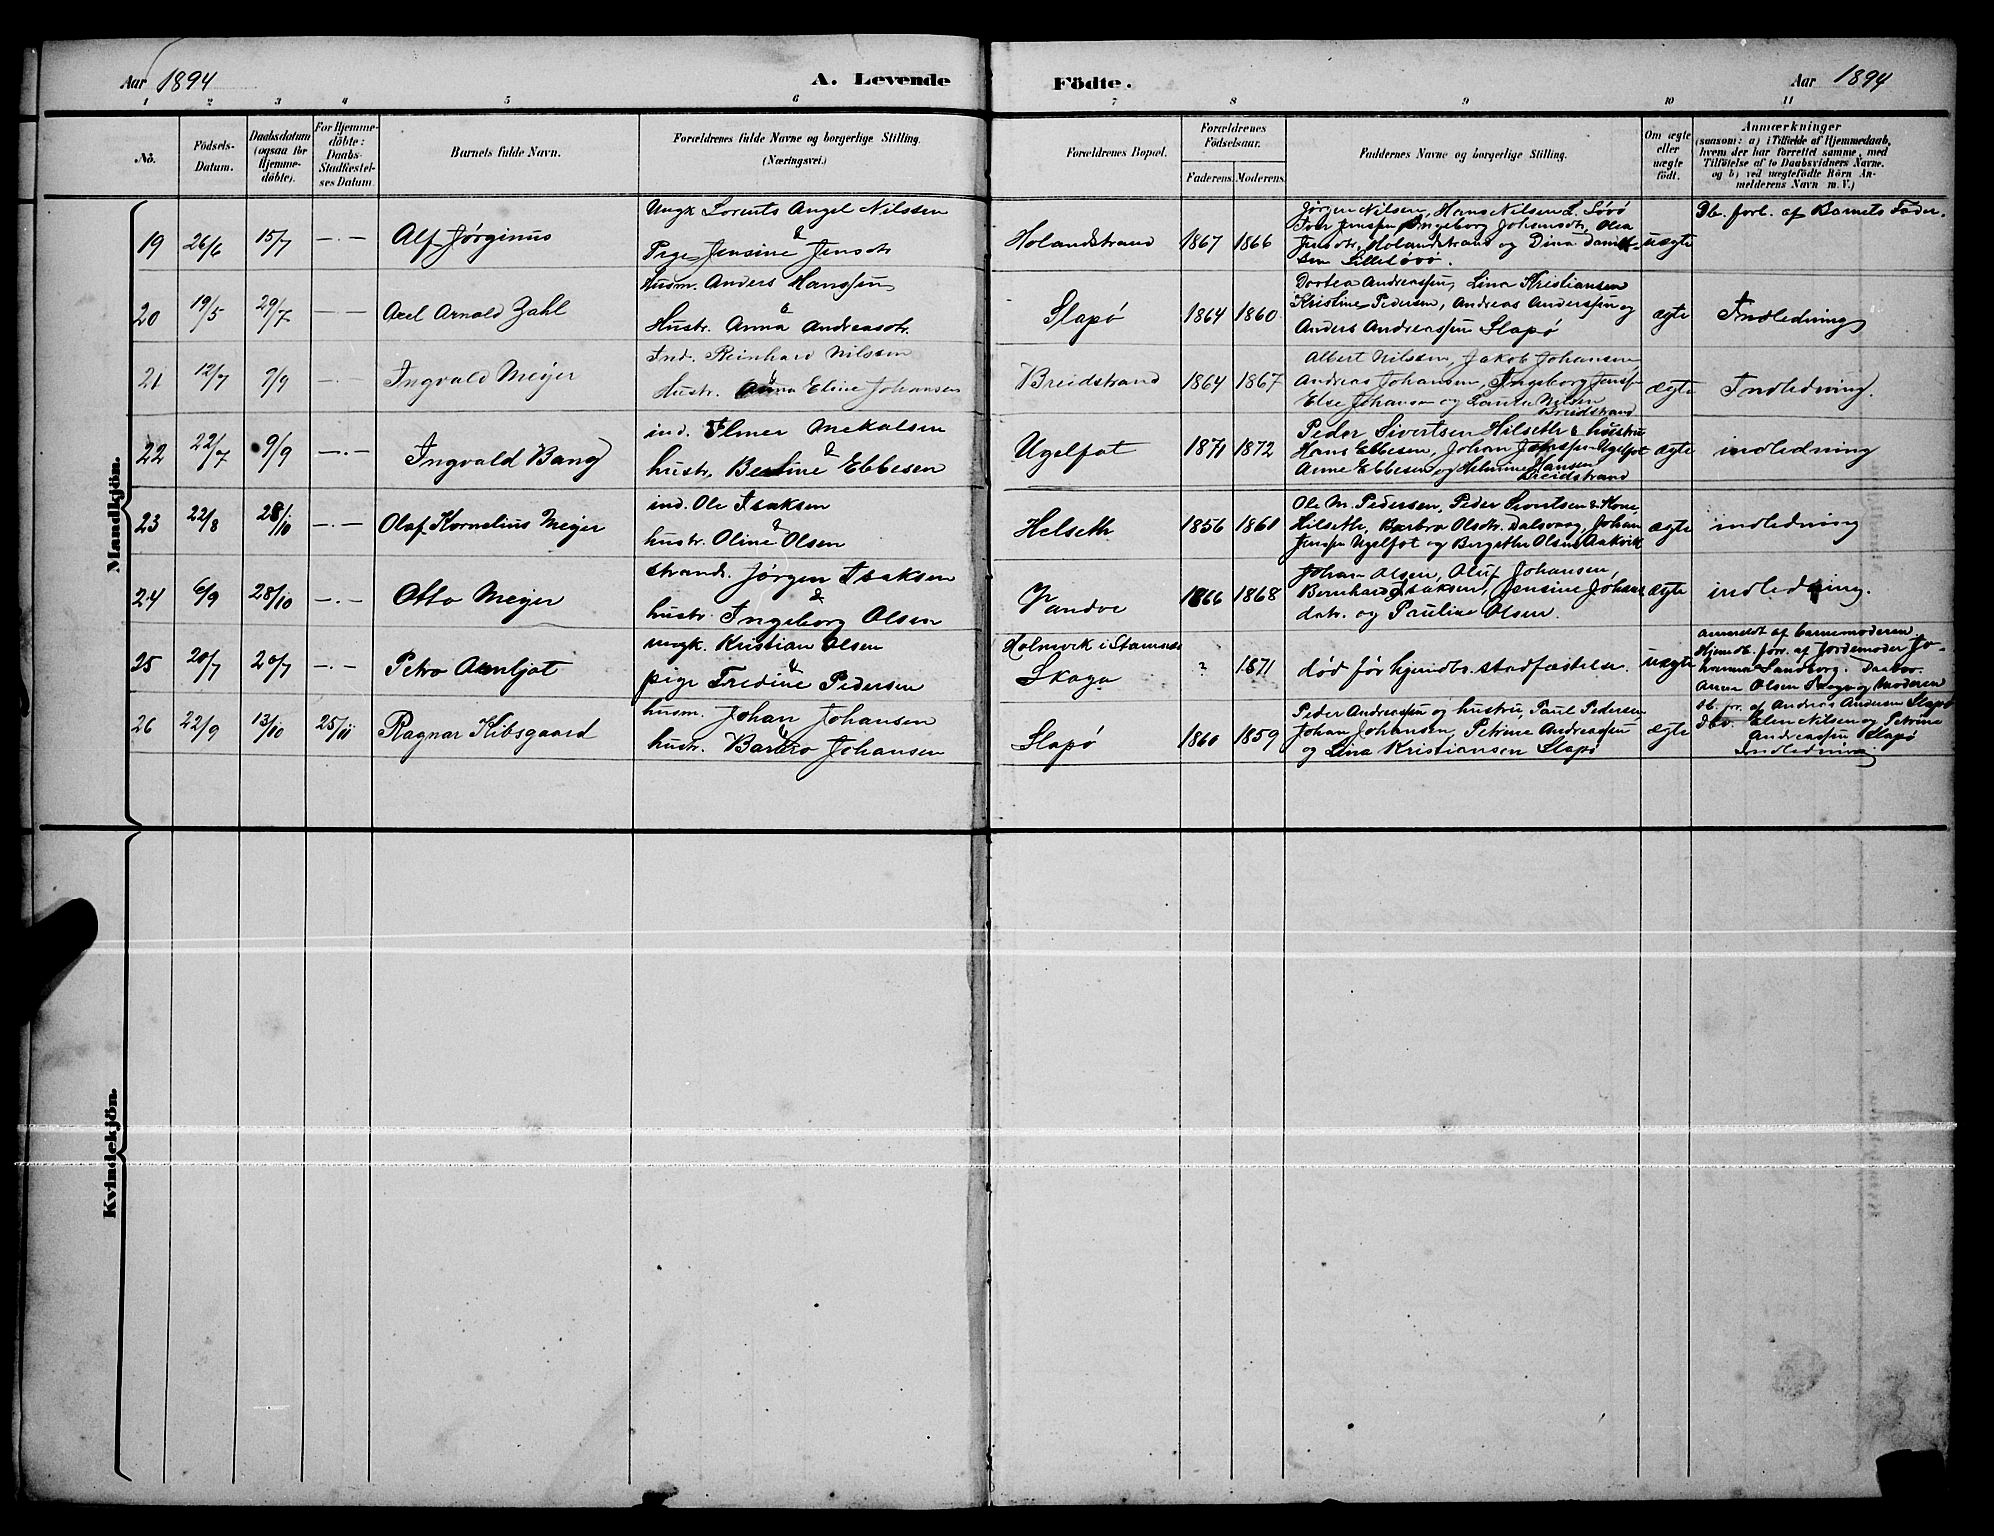 Aar 1894
A. Levende Födte.
Aar 1894
1 2 3 4 5 6 7 8 9 10 11
No.
Födsels-Datum.
Daabsdatum (ogsaa for Hjemme-döbte).
For Hjemme-döbte: Daabs-Stadfæstel-ses Datum
Barnets fulde Navn.
Forældrenes fulde Navne og borgerlige Stilling.
(Næringsvei.)
Forældrenes Bopæl.
Forældrenes Födselsaar.
Faderens. Moderens.
Faddernes Navne og borgerlige Stilling.
Om ægte eller uægte födt.
Anmærkninger
(saasom: a) i Tilfælde af Hjemmedaab, hvem der har forrettet samme, med Tilföielse af to Daabsvidners Navne. og b) ved uægtefödte Börn An-melderens Navn m. V.)
Mandkjön.
19 26/6 15/7 —.— Alf Jørginus
Ungk Lorents Angel Nilssen
&
Pige Jensine Jensdtr
Holandstrand 1867 1866
Jørgen Nilsen, Hans Nilsen L. Søvø
Iver Jenssen, Ingeborg Johansdtr, Olea
Jensdtr, Holandstrand og Dina Daniel-
sen Lillesøvø.
uægte
Db. forl. af Barnets Fader.
20 19/5 29/7 —.— Axel Arnold Zahl
Husm. Anders Hanssen
&
Hustr. Anna Andreasdtr.
Slapø 1864 1860
Dortea Andreassen, Lina Kristiansen
Kristine Pedersen, Andreas Anderssen og
Anders Andreassen Slapø
ægte
Indledning
21 12/7 9/9 —.— Ingvald Meijer
Ind. Reinhard Nilssen
&
Hustr. Anna Eline Johansen
Breidstrand 1864 1867
Albert Nilssen, Jakob Johansen
Andreas Johansen, Ingeborg Jenssen
Else Johansen og Laura Nilsen
Breidstrand
ægte
Indledning.
22 22/7 9/9 —.— Ingvald Bang
ind. Elmer Mekalsen
&
hustr. Berline Ebbesen
Ugelfot 1871 1872
Peder Sivertsen Hilseth & hustru
Hans Ebbesen, Johan Jenssen Ugelfot
Anne Ebbesen og Helmine Hansen
Breidstrand
ægte
indledning
23 22/8 28/10 —.— Olaf Kornelius Meijer
ind. Ole Isaksen
&
hustr. Oline Olsen
Helseth 1856 1861
Ole M. Pedersen, Peder Sivertsen & Kone,
Hilseth, Barbro Olsdtr. Dalsvaag, Johan
Jenssen Ugelfot og Bergethe Olsen Aakvik
ægte
indledning
24 6/9 28/10 —.— Otto Meijer
strands. Jørgen Isaksen
&
hustr. Ingeborg Olsen
Vandve 1866 1868
Johan Olsen, Oluf Johansen,
Bernhard Isaksen, Jensine Johans
datr. og Pauline Olsen.
ægte
indledning.
25 20/7 20/7 —.— Petro Arnljot
ungk. Kristian Olsen
&
pige Fredine Pedersen
Holmvik i Stamnes
Skaga ? 1871
død før hjemdbs. stadfæstelse.
uægte
anmeldt af barnemoderen.
Hjemdb. forr. af Jordemoder Jo-
hanna Sandberg. Daabsv.
Anne Olsen Skaga og Moderen
26 22/9 13/10 25/11 Ragnar Kibsgaard
husm. Johan Johansen
&
hustr. Barbro Johansen
Slapø 1860 1859
Peder Andreassen og hustru, Paul Pedersen,
Johan Johansen, Petrine Andreassen
og Lina Kristiansen Slapø
ægte
Db. for. af Andreas Andersen Slapø
Dbv. Elen Nilsen og Petrine
Andreassen Slapø
Indledning.
Kvindekjön.